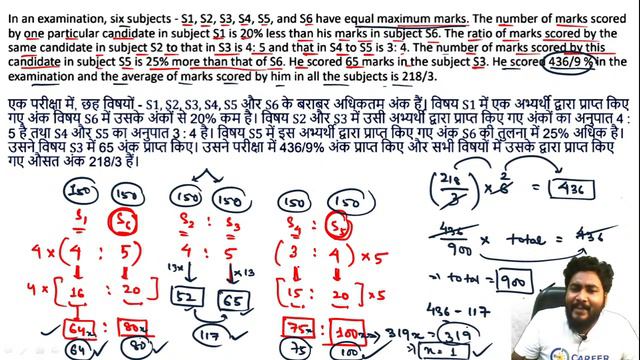 In an examination, six subjects - S1, S2, S3, S4, S5, and S6 have equal maximum marks. The number of marks scored
by one particular candidate in subject S1 is 20% less than his marks in subject S6. The ratio of marks scored by the
same candidate in subject S2 to that in S3 is 4: 5 and that in S4 to S5 is 3: 4. The number of marks scored by this
candidate in subject S5 is 25% more than that of S6. He scored 65 marks in the subject S3. He scored 436/9 % in the
examination and the average of marks scored by him in all the subjects is 218/3.
एक परीक्षा में, छह विषयों - S1, S2, S3, S4, S5 और S6 के बराबर अधिकतम अंक हैं। विषय S1 में एक अभ्यर्थी द्वारा प्राप्त किए
गए अंक विषय S6 में उसके अंकों से 20% कम है। विषय S2 और S3 में उसी अभ्यर्थी द्वारा प्राप्त किए गए अंकों का अनुपात 4 :
5 है तथा S4 और S5 का अनुपात 3 : 4 है। विषय S5 में इस अभ्यर्थी द्वारा प्राप्त किए गए अंक S6 की तुलना में 25% अधिक है।
उसने विषय S3 में 65 अंक प्राप्त किए। उसने परीक्षा में 436/9% अंक प्राप्त किए और सभी विषयों में उसके द्वारा प्राप्त किए
गए औसत अंक 218/3 हैं।
150 150 150 150 150 150
S1 : S6 S2 : S3 S4 : S5
4 × ( 4 : 5 ) 4 : 5 ( 3 : 4 ) × 5
13× ×13
4 × [ 16 : 20 ] 52 65 [ 15 : 20 ] × 5
117
64x : 80x 75x : 100x
64 80 75 100
(218/3) × 6 = 436
2
436/900 × total = 436
⇒ total = 900
436 - 117
319x = 319
⇒ x = 1
CAREER